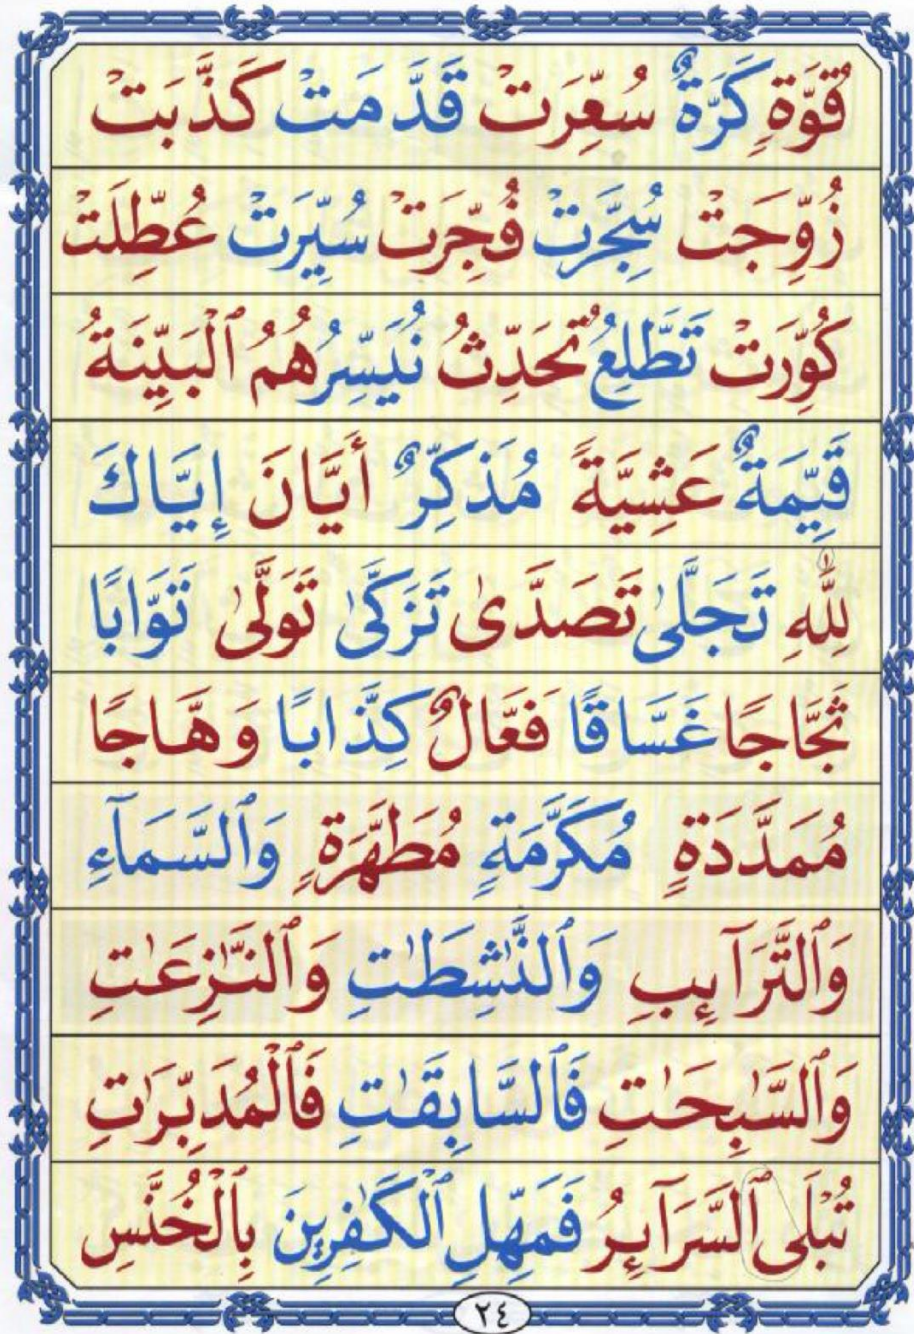 قُوَّةٍ كَرَّةٌ سُعِّرَتْ قَدَّمَتْ كَذَّبَتْ
زُوِّجَتْ سُجِّرَتْ فُجِّرَتْ سُيِّرَتْ عُطِّلَتْ
كُوِّرَتْ تَطَّلِعُ تُحَدِّثُ نُيَسِّرُ هُمُ ٱلْبَيِّنَةُ
قَيِّمَةٌ عَشِيَّةً مُذَكِّرٌ أَيَّانَ إِيَّاكَ
لِلَّهِ تَجَلَّىٰ تَصَدَّىٰ تَزَكَّىٰ تَوَلَّىٰ تَوَّابًا
ثَجَّاجًا غَسَّاقًا فَعَّالٌ كِذَّابًا وَهَّاجًا
مُمَدَّدَةٍ مُكَرَّمَةٍ مُطَهَّرَةٍ وَٱلسَّمَآءِ
وَٱلتَّرَآئِبِ وَٱلنَّٰشِطَٰتِ وَٱلنَّٰزِعَٰتِ
وَٱلسَّٰبِحَٰتِ فَٱلسَّابِقَٰتِ فَٱلْمُدَبِّرَٰتِ
تُبْلَى ٱلسَّرَآئِرُ فَمَهِّلِ ٱلْكَٰفِرِينَ بِٱلْخُنَّسِ
٢٤